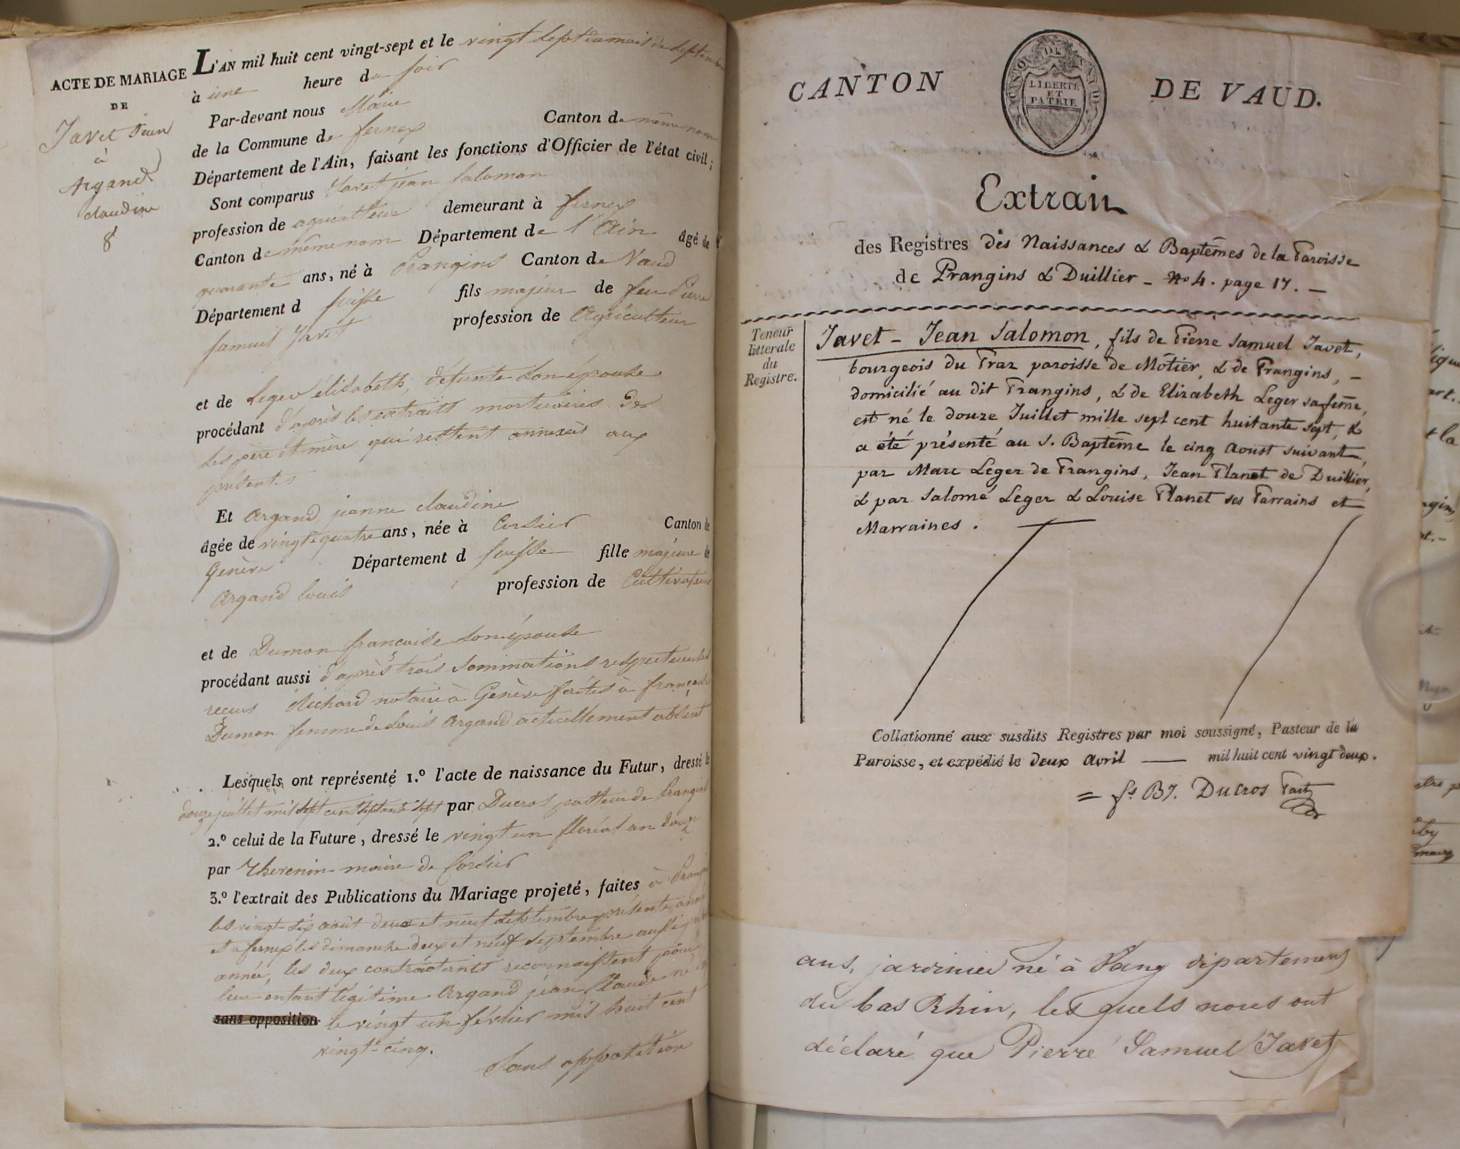 ACTE DE MARIAGE
DE
Javet Jean
à
Argand
claudine
8
L'AN mil huit cent vingt-sept et le vingt sept du mois de septembre
à une heure du soir
Par-devant nous Maire
de la Commune de fernex Canton de même nom
Département de l'Ain, faisant les fonctions d'Officier de l'état civil;
Sont comparus Javet jean Salomon
profession de agriculteur demeurant à fernex
Canton de même nom Département de l'Ain âgé de
quarante ans, né à Prangins Canton de Vaud
Département d suisse fils majeur de feu Pierre
samuel Javet profession de Agriculteur
et de Leger élisabeth, défunte son épouse
procédant d'après les extraits mortuaires de
ses père et mère qui restent annexés aux
présentes
Et Argand jeanne claudine
âgée de vingt quatre ans, née à Corsier Canton de
Genève Département d suisse fille majeure de
Argand louis profession de Cultivateur
et de Dumon francoise son épouse
procédant aussi d'après trois sommations respectueuses
recues Richard notaire à Genève faites à francoise
Dumon femme de Louis Argand actuellement absent
Lesquels ont représenté 1.º l'acte de naissance du Futur, dressé le
douze juillet mil sept cent septante sept par Ducros pasteur de Prangins
2.º celui de la Future, dressé le vingt un floréal an douze
par Thevenin maire de Corsier
3.º l'extrait des Publications du Mariage projeté, faites à Prangins
les vingt six août deux et neuf septembre présente année
et à fernex les dimanche deux et neuf septembre aussi présente
année, les deux contractants reconnaissent pour
leur enfant légitime Argand jean Claude né
sans opposition le vingt un février mil huit cent
vingt-cinq.
Sans opposition
CANTON DE VAUD.
CANTON DE VAUD
LIBERTE
ET
PATRIE
Extrait
des Registres des Naissances & Baptêmes de la Paroisse
de Prangins & Duillier - No 4. page 17. -
Teneur
littérale
du
Registre.
Javet - Jean Salomon, fils de Pierre Samuel Javet,
bourgeois du Praz paroisse de Motier, & de Prangins, -
domicilié au dit Prangins, & de Elizabeth Leger sa fême,
est né le douze Juillet mille sept cent huitante sept, &
a été présenté au S. Baptême le cinq Aoust suivant,
par Marc Leger de Prangins, Jean Planet de Duillier,
& par Salomé Leger & Louise Planet ses Parrains et
Marraines.
Collationné aux susdits Registres par moi soussigné, Pasteur de la
Paroisse, et expédié le deux Avril mil huit cent vingt deux.
Ducros Past.
ans, jardinier né à Vang département
du bas Rhin, lesquels nous ont
déclaré que Pierre Samuel Javet